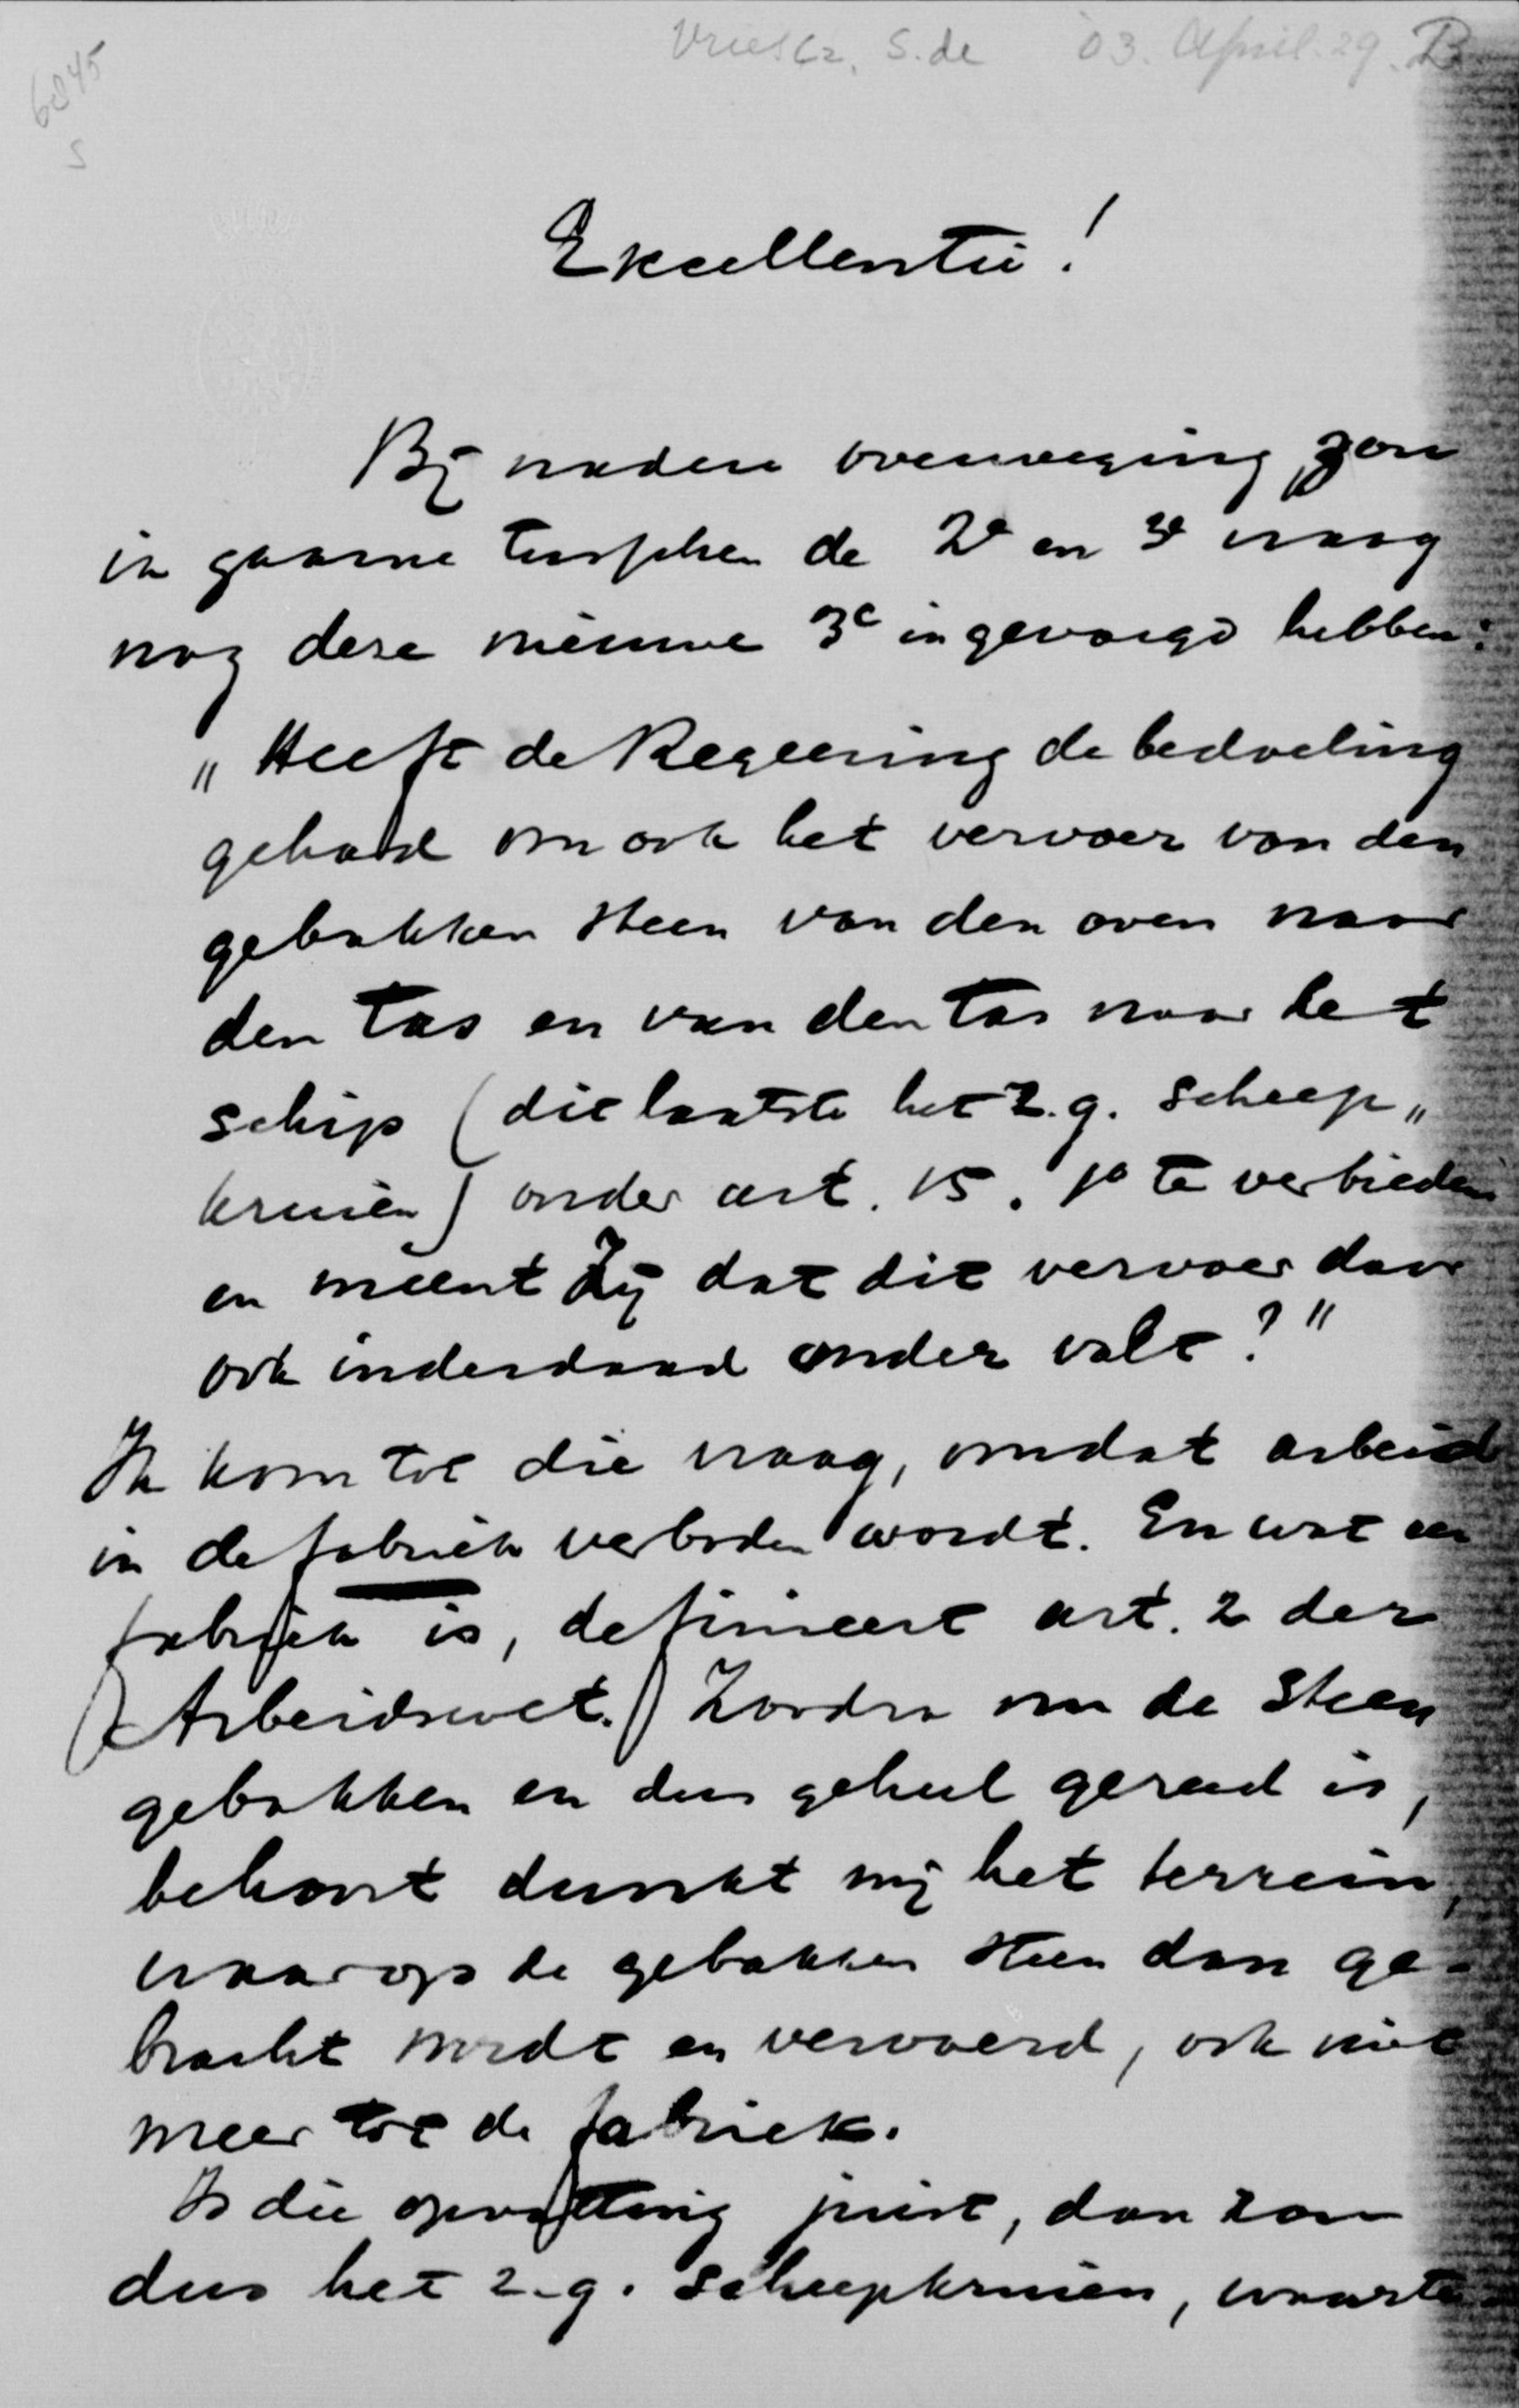 Vries Cz, S. de 03. April. 29. B
6845
S
Excellentie!
Bij nadere overweging zou
ik gaarne tusschen de 2e en 3e vraag
nog deze nieuwe 3e ingevoegd hebben:
„Heeft de Regeering de bedoeling
gehad om ook het vervoer van den
gebakken steen van den oven naar
den tas en van den tas naar het
schip (dit laatste het z.g. scheep„
kruien) onder art. 15. 1o te verbieden
en meent Zij dat dit vervoer daar
ook inderdaad onder valt?"
Ik kom tot die vraag, omdat arbeid
in de fabriek verboden wordt. En wat een
fabriek is, definieert art. 2 der
Arbeidswet. Zoodra nu de steen
gebakken en dus geheel gereed is,
behoort dunkt mij het terrein,
waarop de gebakken steen dan ge-
bracht wordt en vervoerd, ook niet
meer tot de fabriek.
Is die opvatting juist, dan zou
dus het z.g. scheepkruien, waarte-